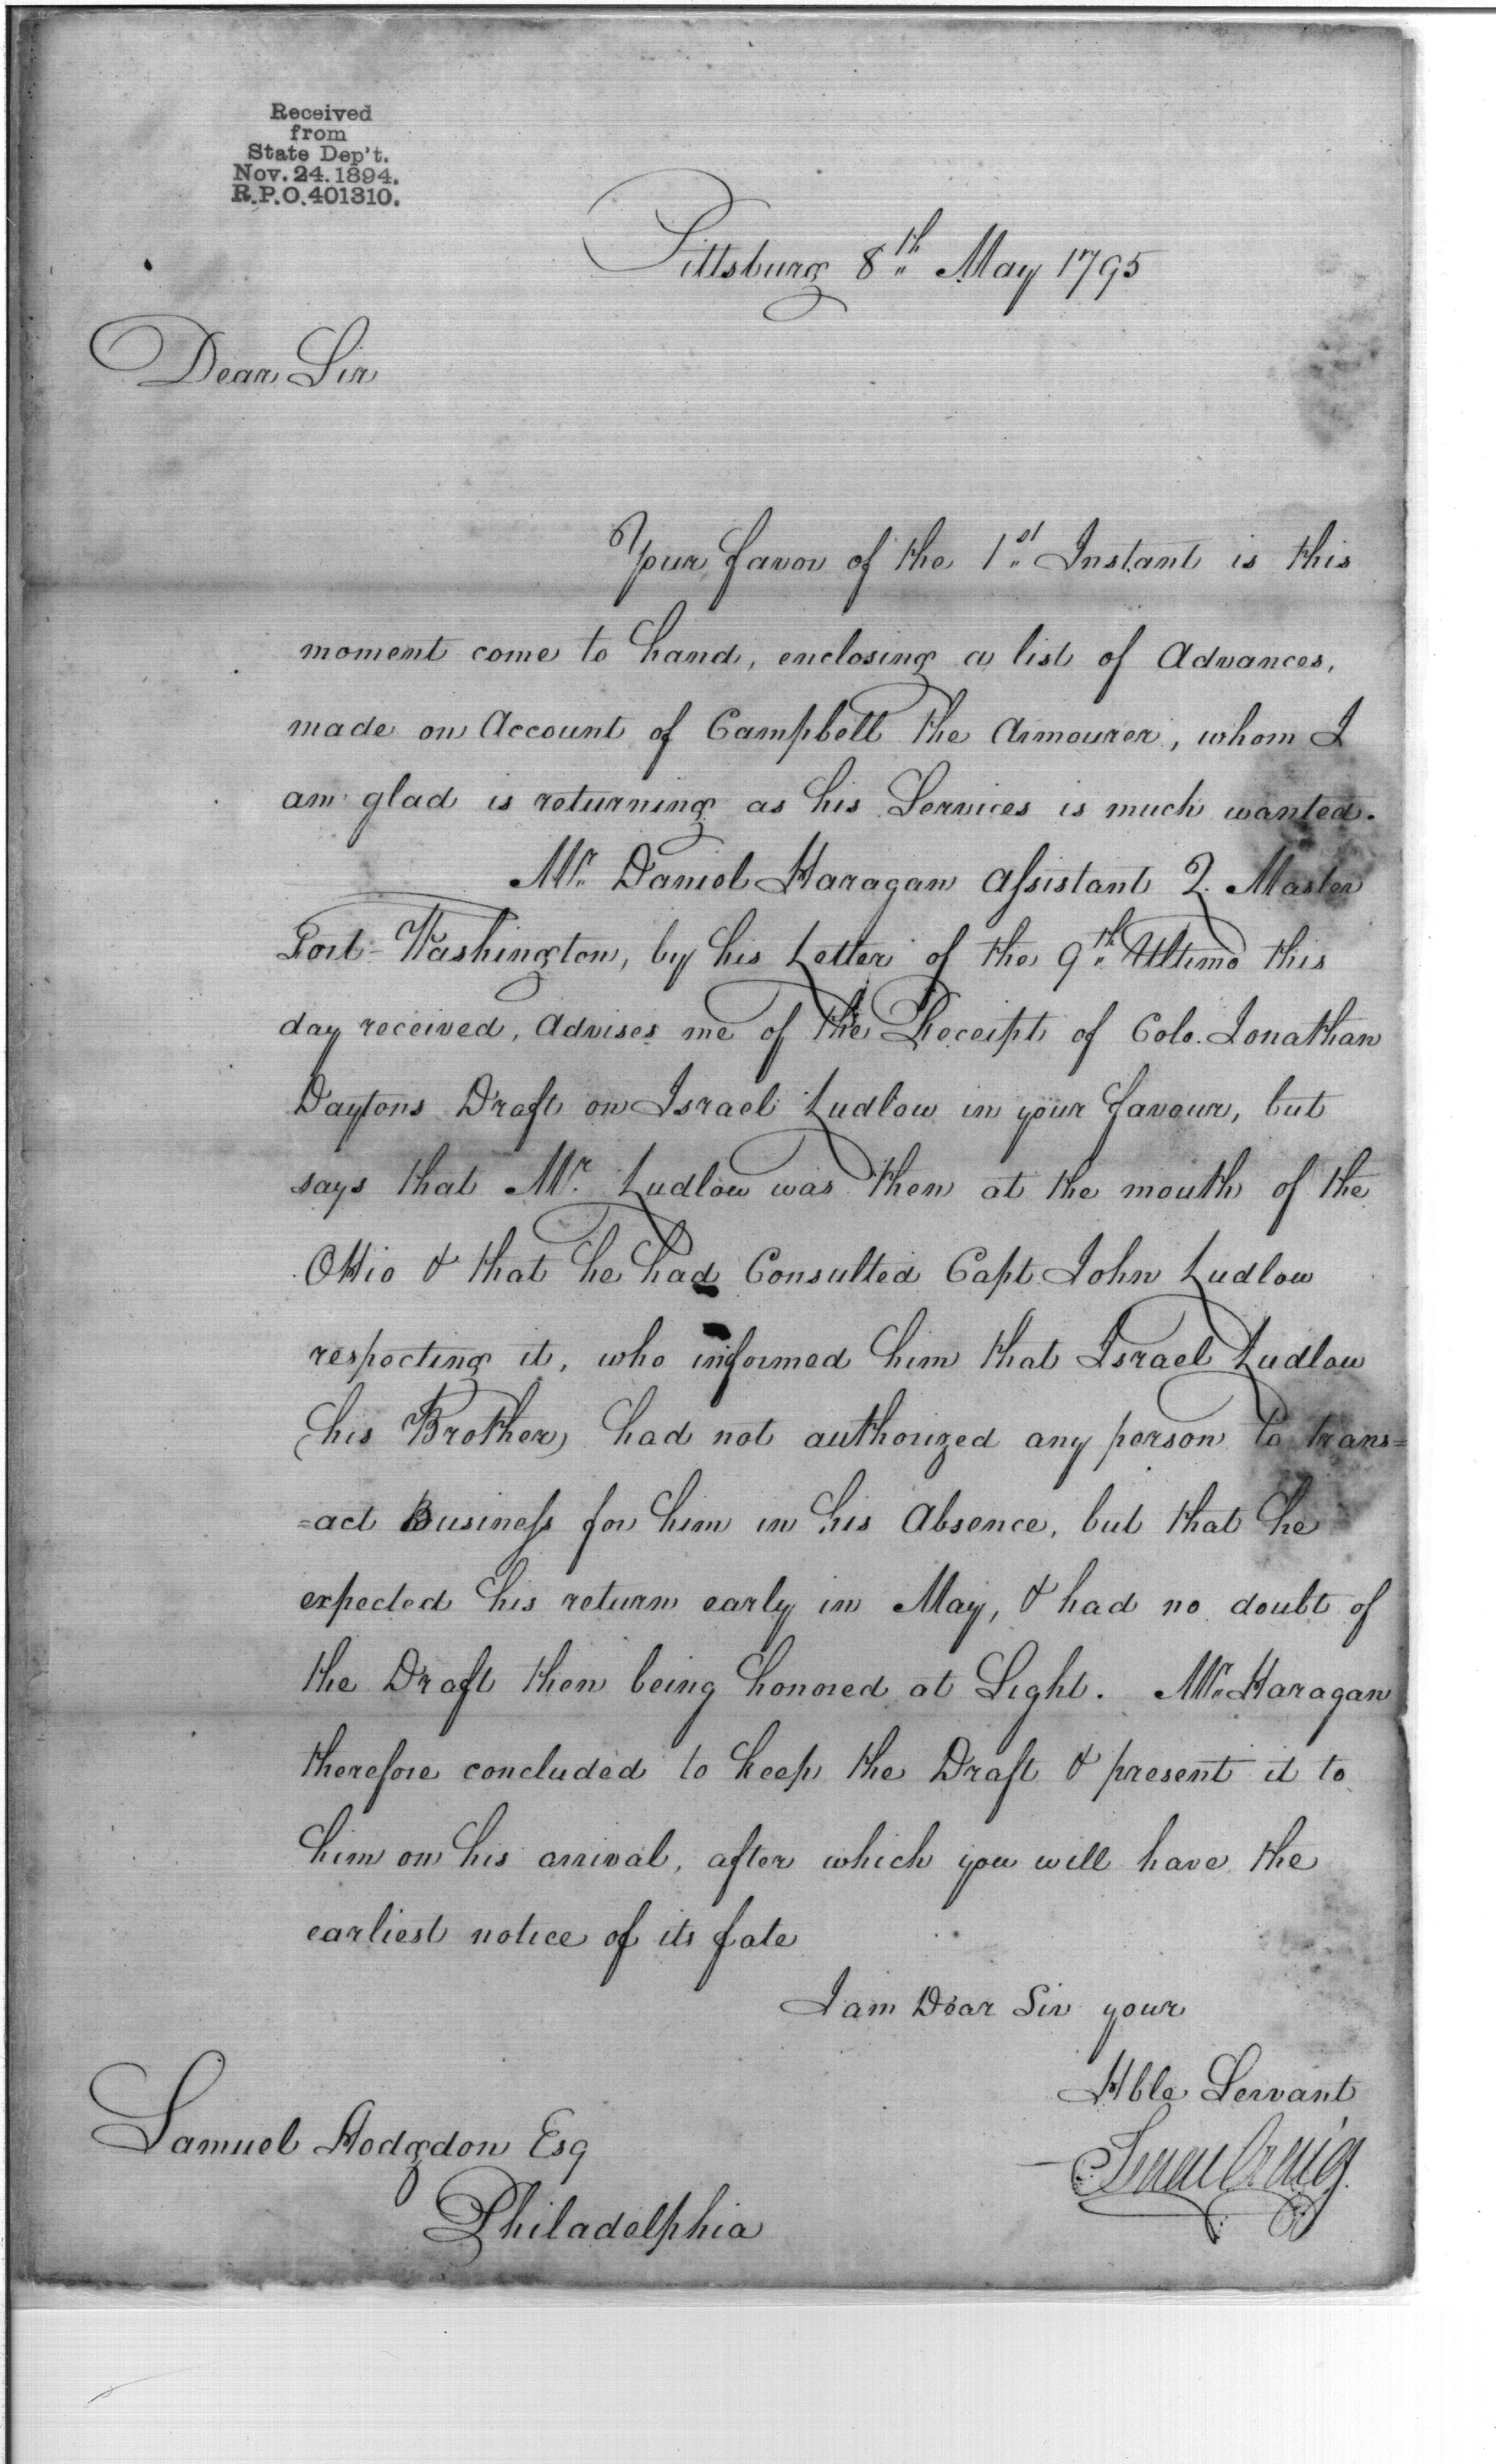 Received
from
State Dep't.
Nov. 24. 1894.
R.P.O. 401310.
Pittsburg 8th May 1795
Dear Sir
Your favor of the 1st Instant is this
moment come to hand, enclosing a list of Advances,
made on Account of Campbell the Armourer, whom I
am glad is returning as his Services is much wanted.
Mr. Daniel Haragan Assistant Q. Master
Fort-Washington, by his Letter of the 9th Ultimo this
day received, Advises me of the Receipt of Colo. Jonathan
Daytons Draft on Israel Ludlow in your favour, but
says that Mr. Ludlow was then at the mouth of the
Ohio & that he had Consulted Capt. John Ludlow
respecting it, who informed him that Israel Ludlow
(his Brother) had not authorized any person to trans=
=act Business for him in his Absence, but that he
expected his return early in May, & had no doubt of
the Draft then being honored at Sight. Mr. Haragan
therefore concluded to keep the Draft & present it to
him on his arrival, after which you will have the
earliest notice of its fate
I am Dear Sir your
Hble Servant
Isaac Craig
Samuel Hodgdon Esq
Philadelphia